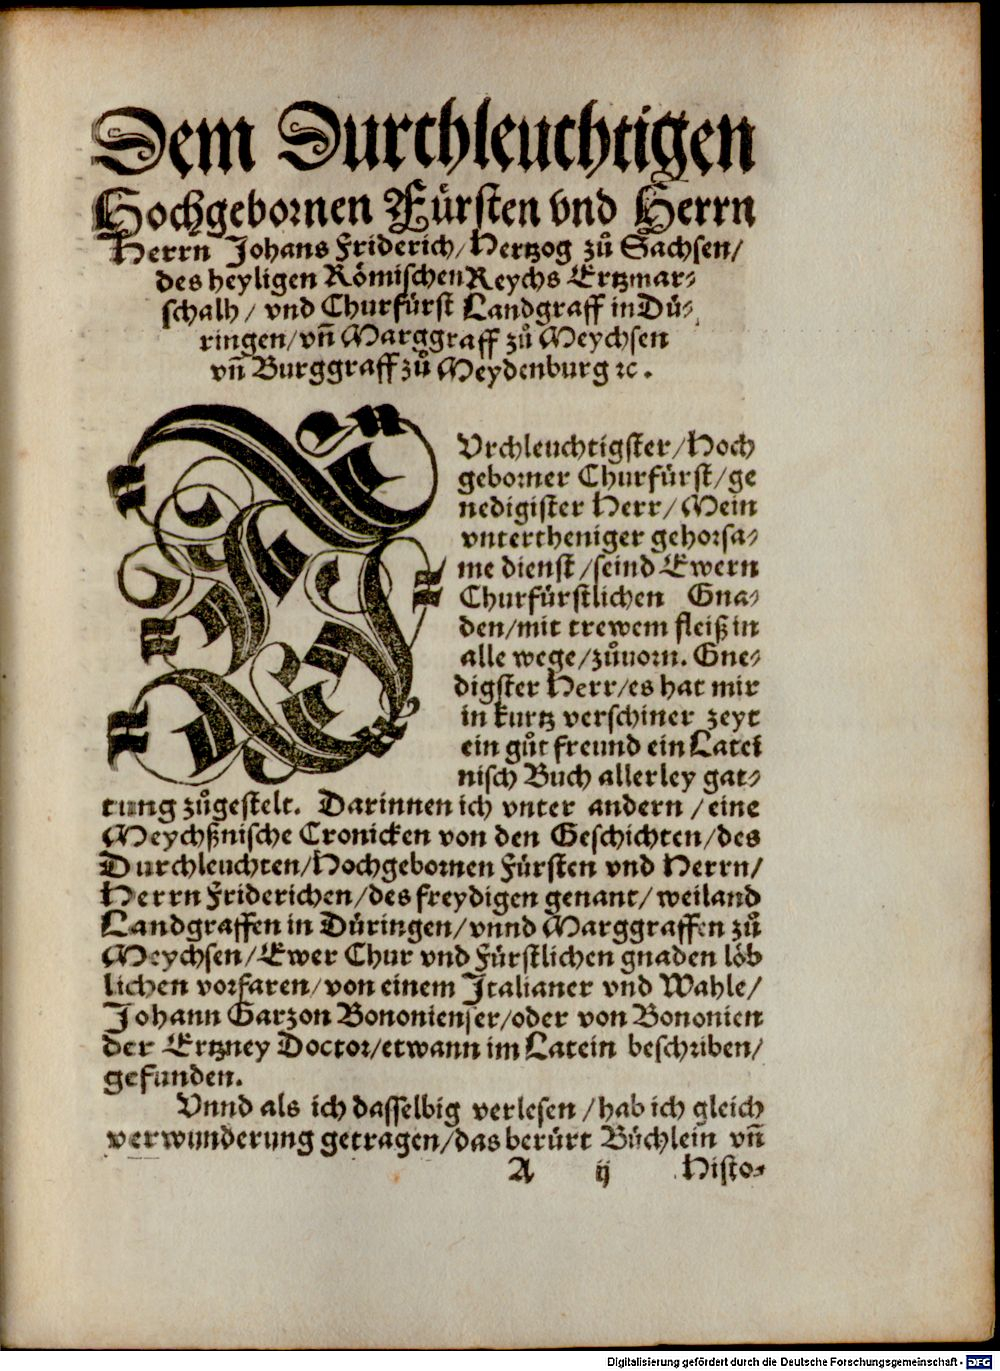 Dem Durchleuchtigen
Hochgebornen Fürsten vnd Herrn
Herrn Johans Friderich/ Hertzog zů Sachsen/
des heyligen Römischen Reychs Ertzmar⸗
schalh/ vnd Churfürst Landgraff in Dü⸗
ringen/ vñ Marggraff zů Meychsen
vñ Burggraff zů Meydenburg ⁊c.
DVrchleuchtigster/ Hoch
geborner Churfürst/ ge
nedigister Herr/ Mein
vntertheniger gehorsa⸗
me dienst/ seind Ewern
Churfürstlichen Gna⸗
den/ mit trewem fleiß in
alle wege/ zůuorn. Gne⸗
digster Herr/ es hat mir
in kurtz verschiner zeyt
ein gůt freund ein Latei
nisch Buch allerley gat⸗
tung zůgestelt. Darinnen ich vnter andern/ eine
Meychßnische Cronicken von den Geschichten/ des
Durchleuchten/ Hochgebornen Fürsten vnd Herrn/
Herrn Friderichen/ des freydigen genant/ weiland
Landgraffen in Düringen/ vnnd Marggraffen zů
Meychsen/ Ewer Chur vnd Fürstlichen gnaden löb
lichen vorfaren/ von einem Italianer vnd Wahle/
Johann Garzon Bononienser/ oder von Bononien
der Ertzney Doctor/ etwann im Latein beschriben/
gefunden.
Vnnd als ich dasselbig verlesen/ hab ich gleich
verwunderung getragen/ das berürt Büchlein vñ
A ij Histo⸗
Digitalisierung gefördert durch die Deutsche Forschungsgemeinschaft - DFG